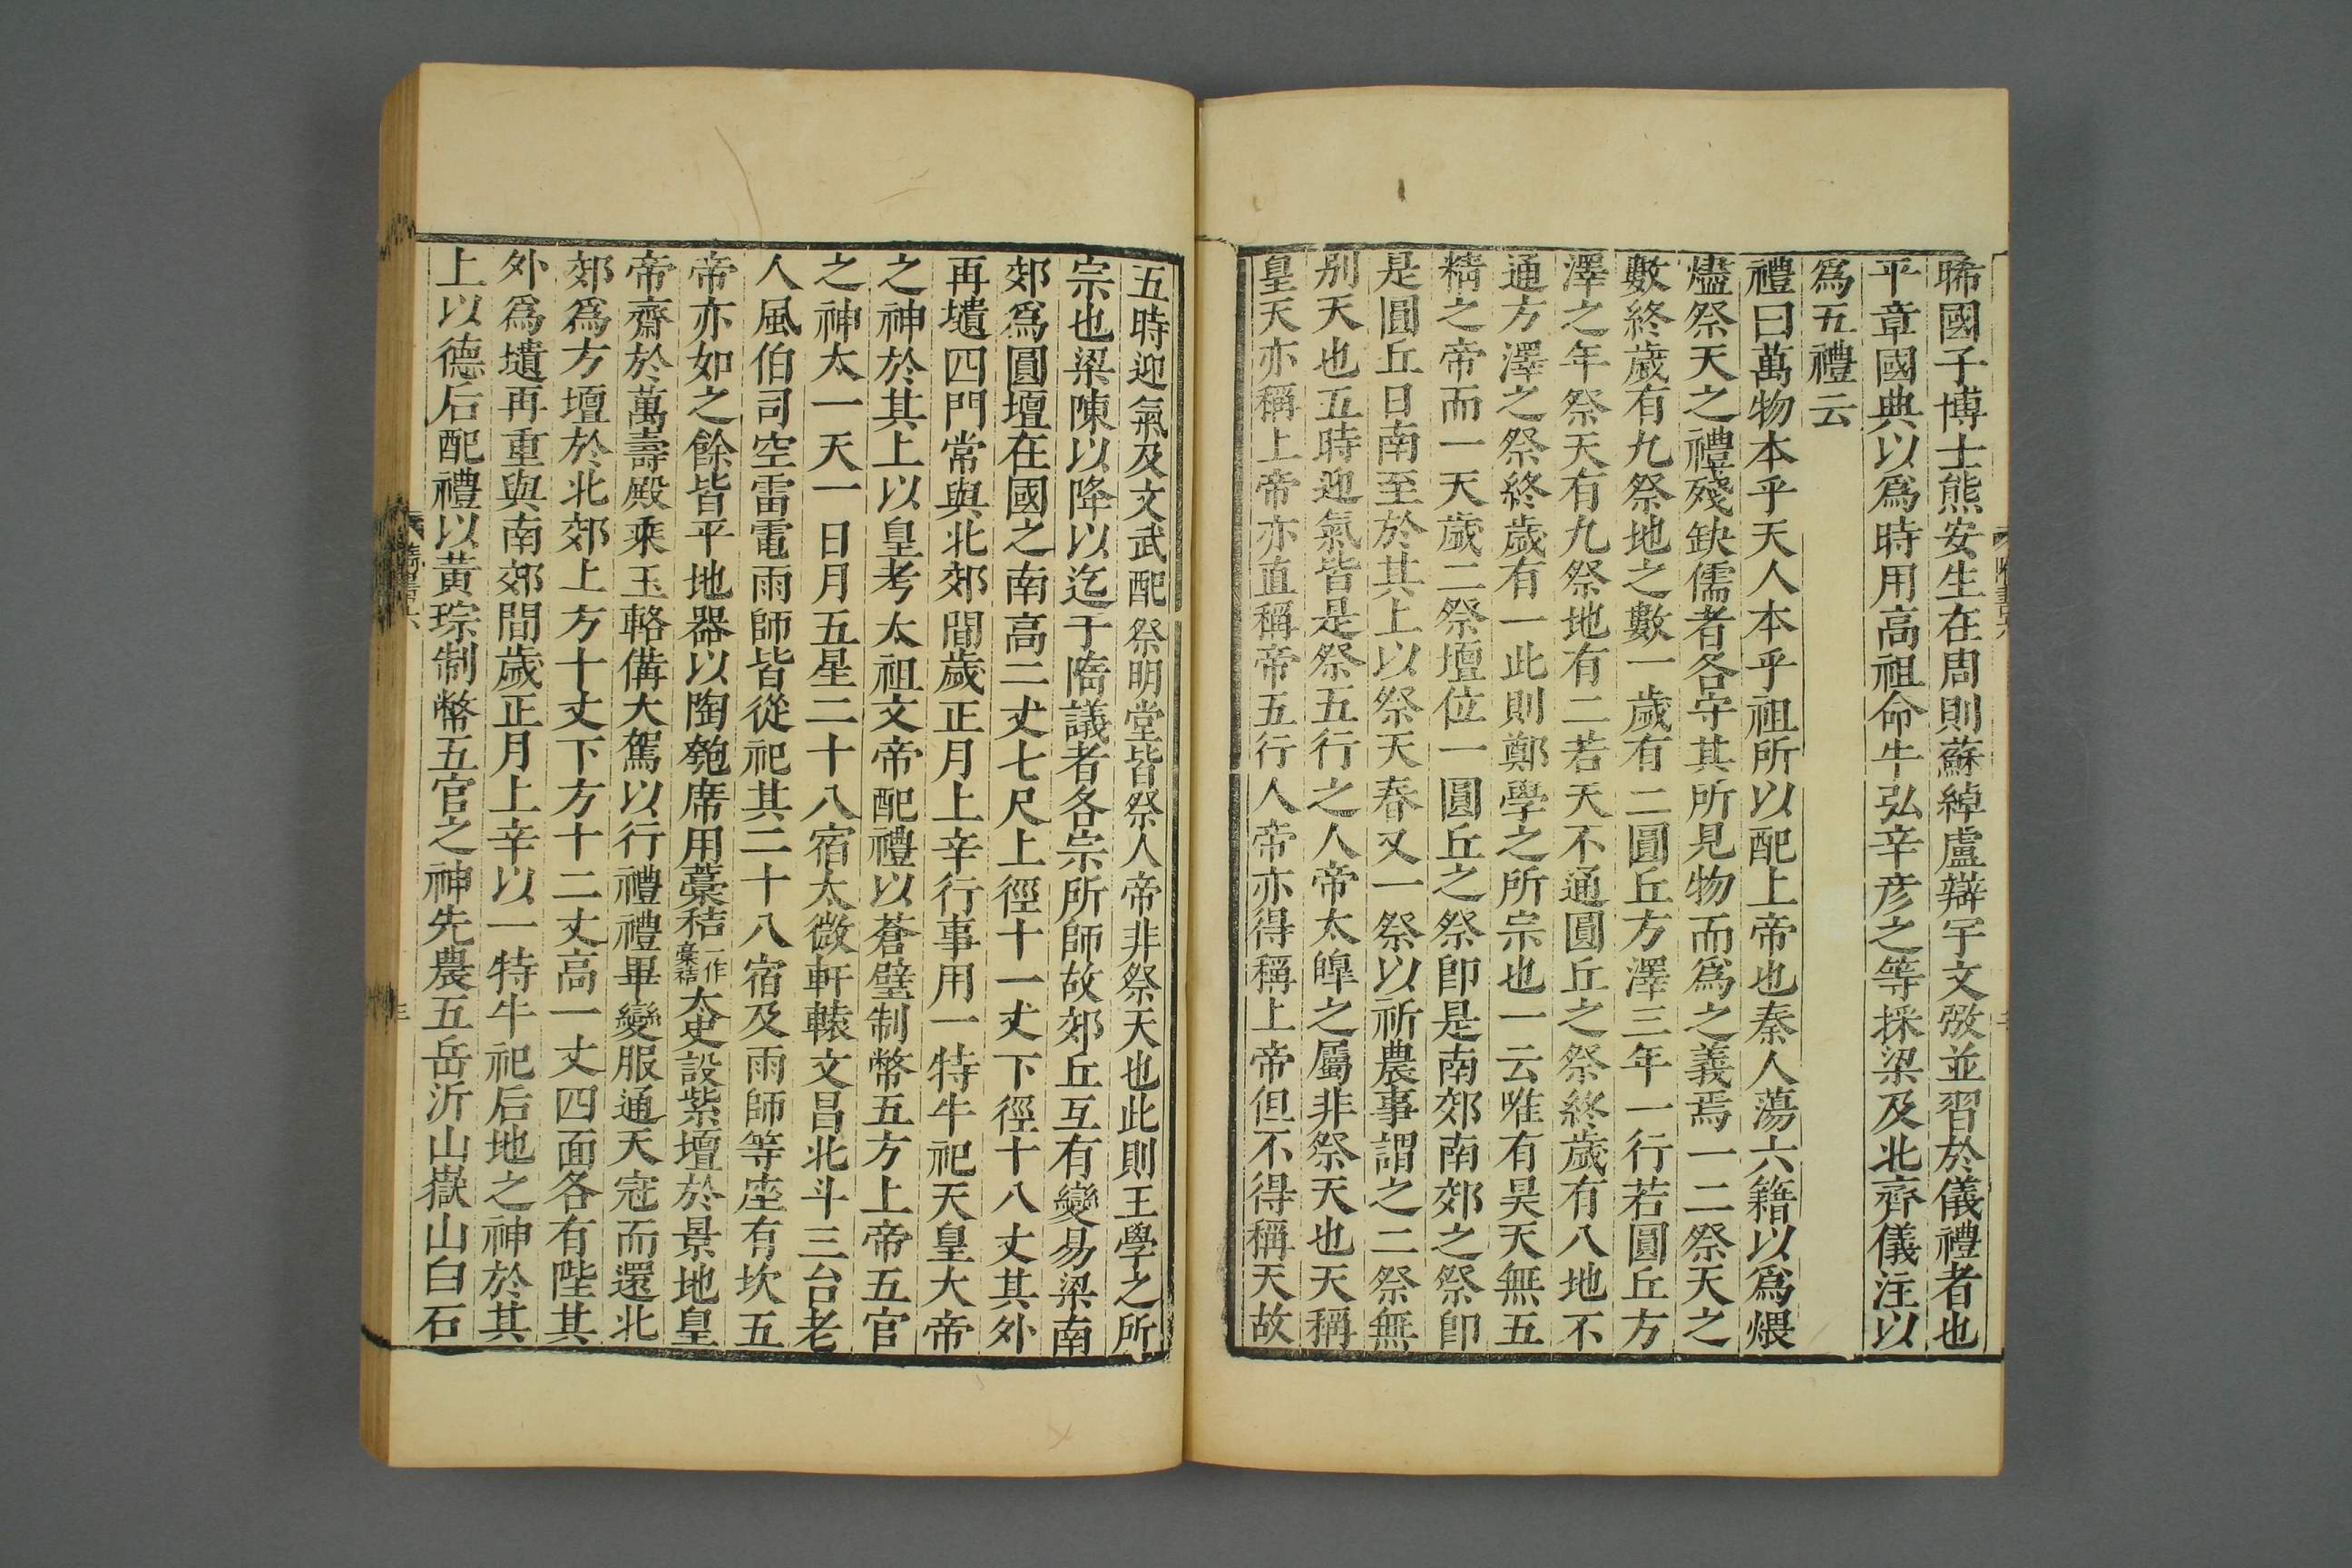 睎國子博士熊安生在周則蘇綽盧辯宇文㢸並習於儀禮者也
平章國典以爲時用高祖命牛弘辛彦之等採梁及北齊儀注以
爲五禮云
禮曰萬物本乎天人本乎祖所以配上帝也秦人蕩六籍以爲煨
燼祭天之禮殘缺儒者各守其所見物而爲之義焉一二祭天之
數終歲有九祭地之數一歲有二圓丘方澤三年一行若圓丘方
澤之年祭天有九祭地有二若天不通圓丘之祭終歲有八地不
通方澤之祭終歲有一此則鄭學之所宗也一云唯有昊天無五
精之帝而一天歲二祭壇位一圓丘之祭卽是南郊南郊之祭卽
是圓丘日南至於其上以祭天春又一祭以祈農事謂之二祭無
别天也五時迎氣皆是祭五行之人帝太皥之屬非祭天也天稱
皇天亦稱上帝亦直稱帝五行人帝亦得稱上帝但不得稱天故
五時迎氣及文武配祭明堂皆祭人帝非祭天也此則王學之所
宗也梁陳以降以迄于隋議者各宗所師故郊丘互有變易梁南
郊爲圓壇在國之南高二丈七尺上徑十一丈下徑十八丈其外
再壝四門常與北郊間歲正月上辛行事用一特牛祀天皇大帝
之神於其上以皇考太祖文帝配禮以蒼璧制幣五方上帝五官
之神太一天一日月五星二十八宿太微軒轅文昌北斗三台老
人風伯司空雷電雨師皆從祀其二十八宿及雨師等座有坎五
帝亦如之餘皆平地器以陶匏席用藁秸一作藳秸太史設紫壇於景地皇
帝齋於萬壽殿乘玉輅備大駕以行禮禮畢變服通天冠而還北
郊爲方壇於北郊上方十丈下方十二丈高一丈四面各有陛其
外爲壝再重與南郊間歲正月上辛以一特牛祀后地之神於其
上以德后配禮以黃琮制幣五官之神先農五岳沂山嶽山白石